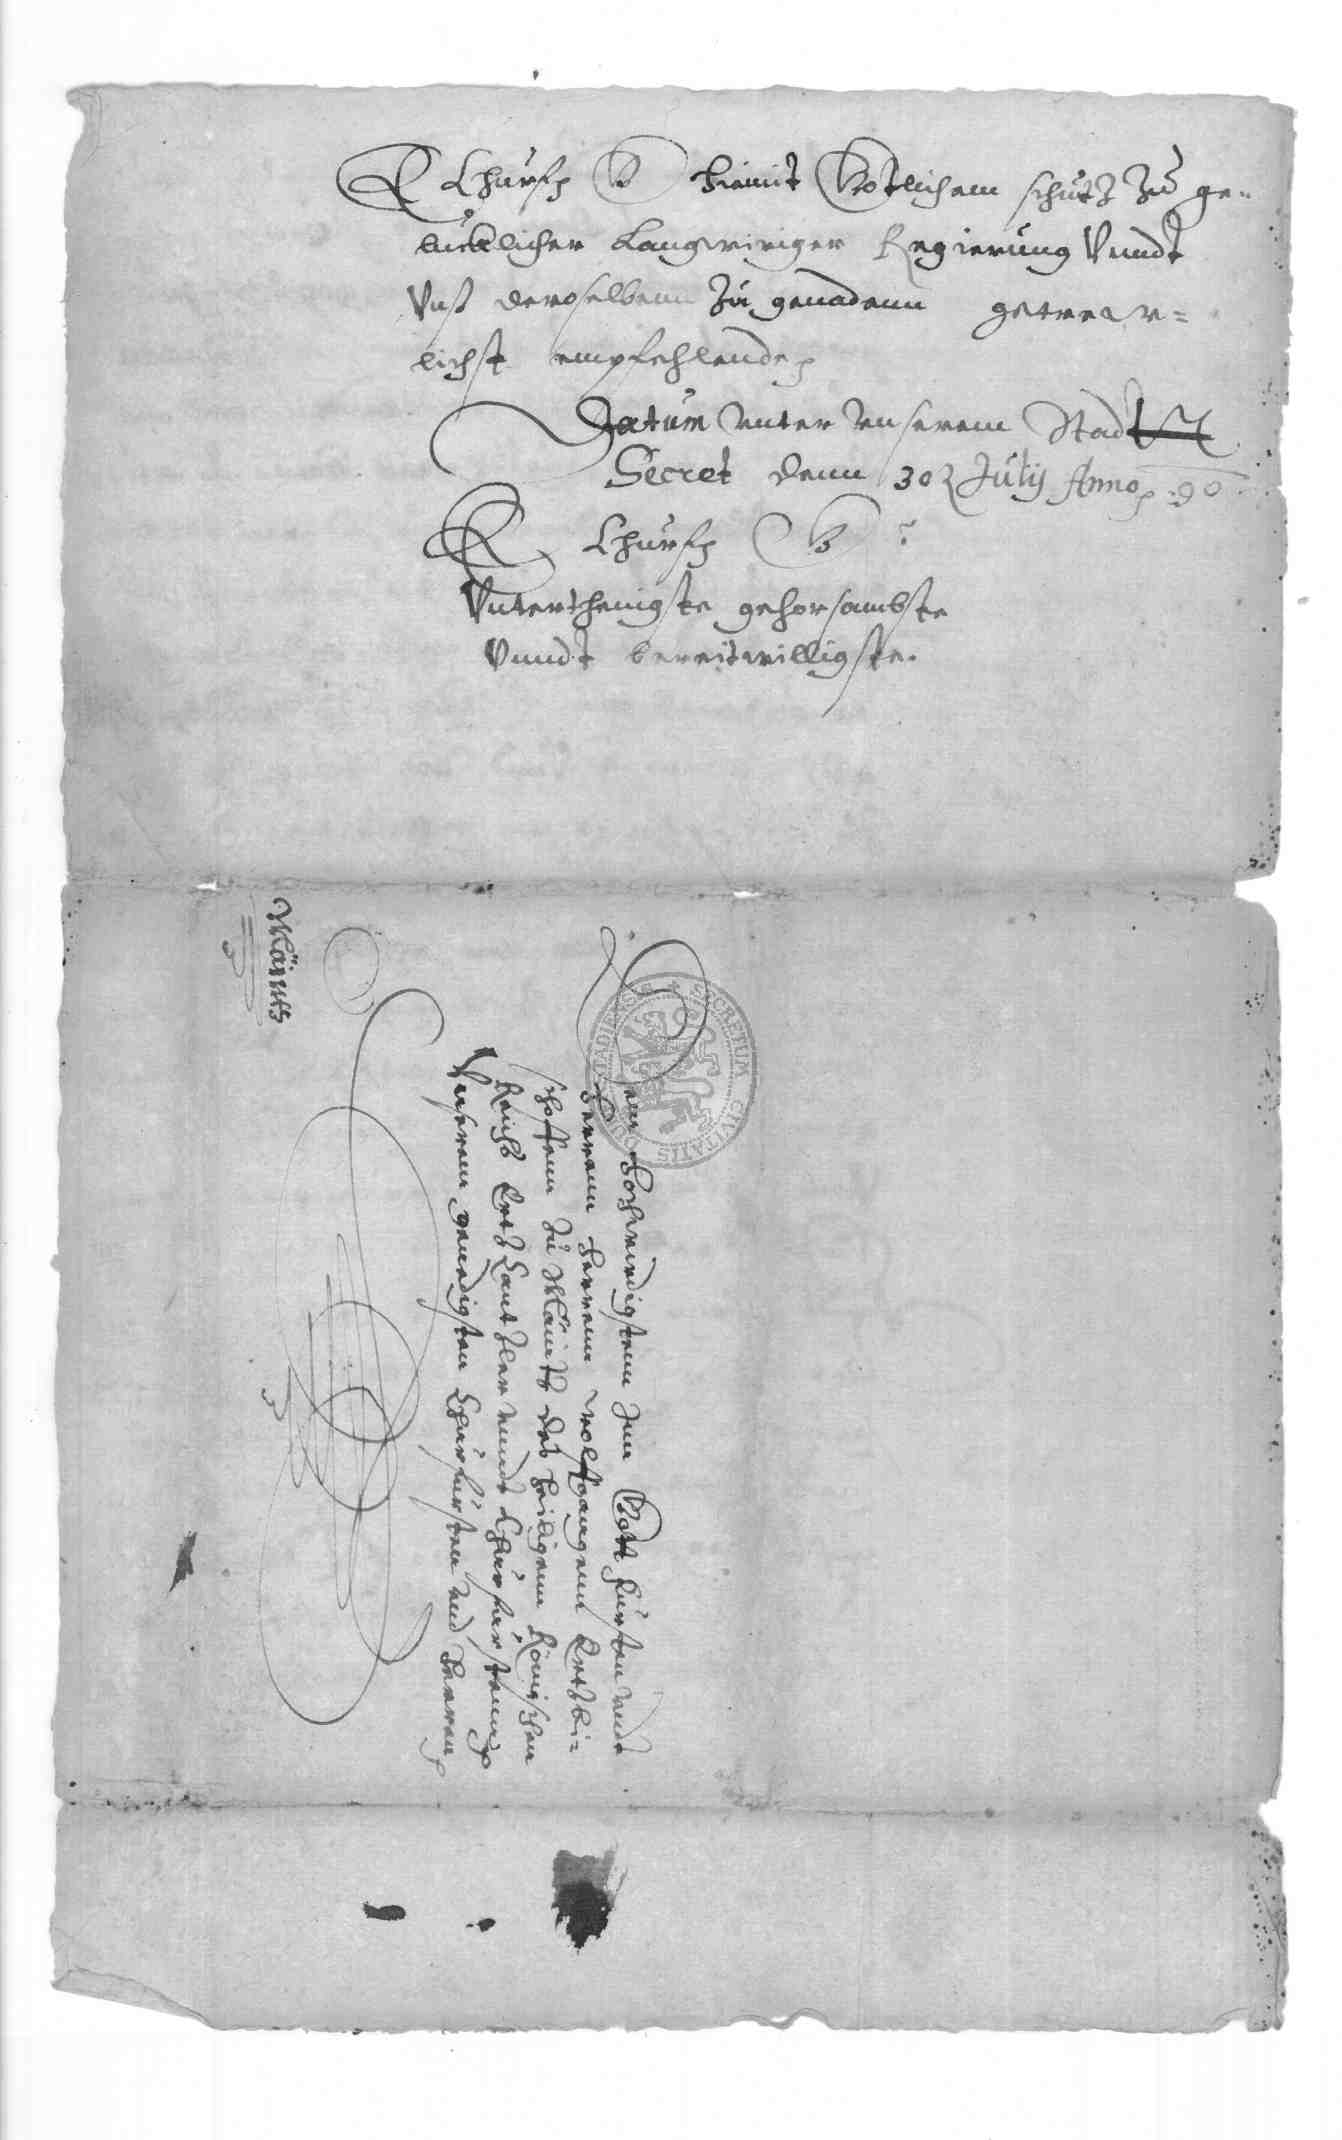 E Churf G hiemit Gotlichem schutz zu ge-
lucklicher Langwiriger Regierung Vnndt
Vnß deroselbenn zu genadenn getrew=
lichst empfehlende
Datum vnter vnserem Stadt
Secret denn 30 July Anno 90
E Churf G
Vnterthenigste gehorsambste
Vnndt bereitwilligste.
Mäintz
em Hochwirdigstenn Inn Gott Fürsten vndt
Herrenn Herrenn Wolffgangenn Ertzbi=
schoffenn zu Mäintz des heiligenn Römischen
Reichs Ertz Cantzler vnndt Churfürstenn
Vnserem genedigsten Churfürsten vnd Herren
SECRETUM CIVITATIS